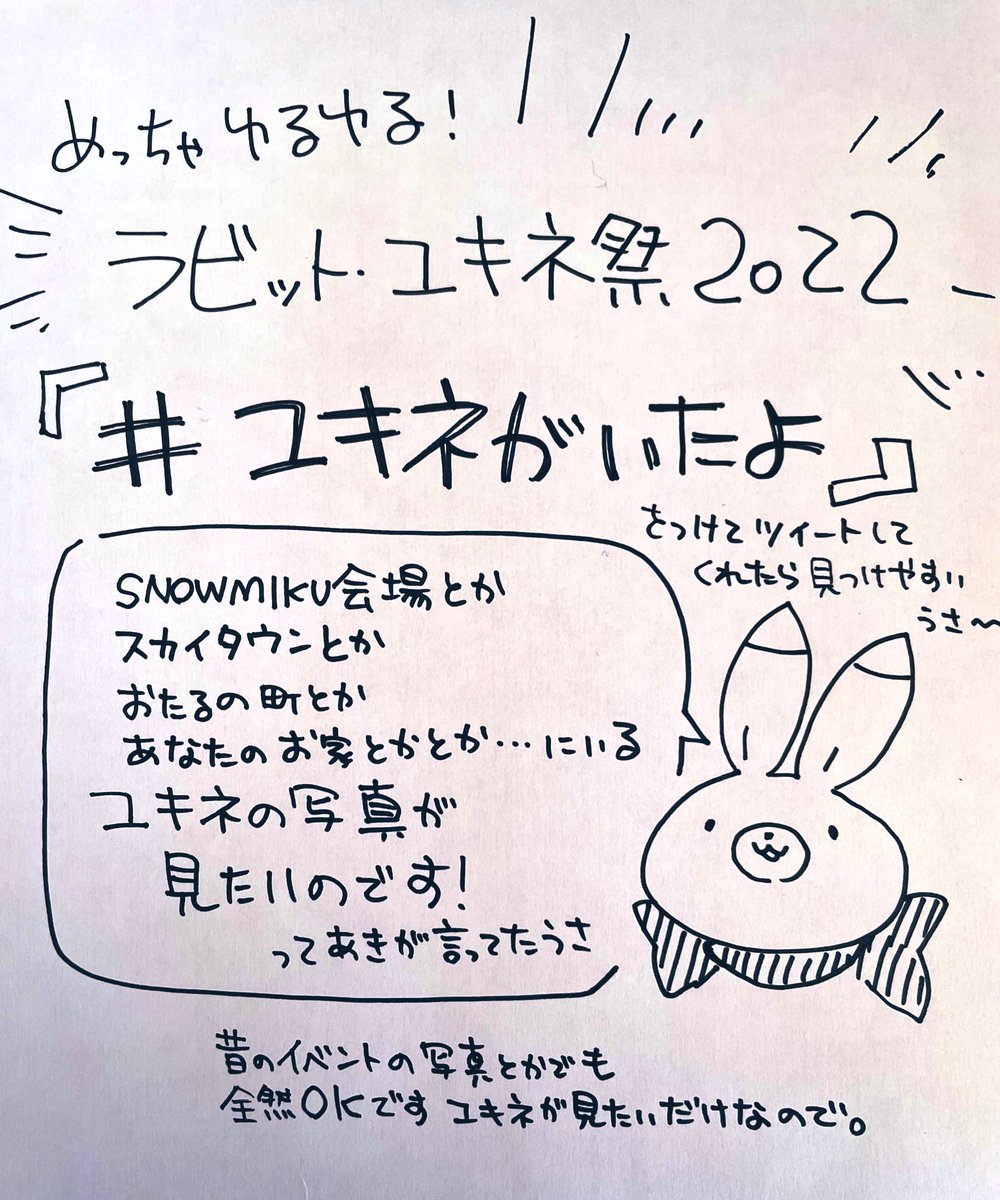 めっちゃゆるゆる!
ラビット・ユキネ祭2022
『#ユキネがいたよ』
をつけてツイートして
くれたら見つけやすい
うさ〜
SNOWMIKU会場とか
スカイタウンとか
おたるの町とか
あなたのお家とかとか…にいる
ユキネの写真が
見たいのです!
ってあきが言ってたうさ
昔のイベントの写真とかでも
全然OKです ユキネが見たいだけなので。